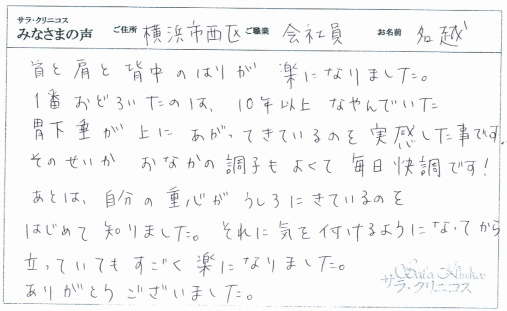 サラ・クリニコス
みなさまの声 ご住所 横浜市西区 ご職業 会社員 お名前 名越
首と肩と背中のはりが 楽になりました。
1番おどろいたのは、10年以上 なやんでいた
胃下垂が上に あがってきているのを 実感した事です。
そのせいか おなかの調子もよくて 毎日快調です！
あとは、自分の重心が うしろにきているのを
はじめて知りました。それに気を付けるようになってから
立っていてもすごく楽になりました。
ありがとうございました。
サラ・クリニコス